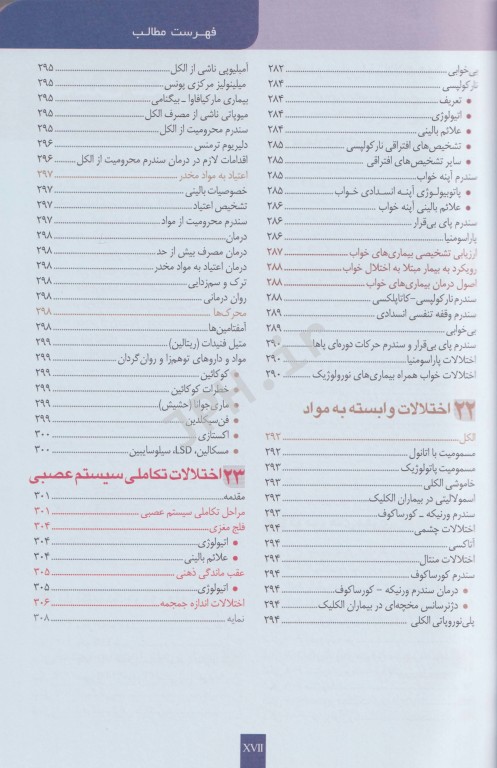 فهرست مطالب
بی‌خوابی ... ۲۸۳
نارکولپسی ... ۲۸۴
• تعریف ... ۲۸۴
• اتیولوژی ... ۲۸۴
• علائم بالینی ... ۲۸۴
• تشخیص‌های افتراقی نارکولپسی ... ۲۸۵
• سایر تشخیص‌های افتراقی ... ۲۸۵
سندرم آپنه خواب ... ۲۸۵
• پاتوبیولوژی آپنه انسدادی خواب ... ۲۸۵
• علائم بالینی آپنه خواب ... ۲۸۶
سندرم پای بی‌قرار ... ۲۸۶
پاراسومنیا ... ۲۸۶
ارزیابی تشخیصی بیماری‌های خواب ... ۲۸۷
رویکرد به بیمار مبتلا به اختلال خواب ... ۲۸۸
اصول درمان بیماری‌های خواب ... ۲۸۸
سندرم نارکولپسی-کاتاپلکسی ... ۲۸۸
سندرم وقفه تنفسی انسدادی ... ۲۸۹
بی‌خوابی ... ۲۸۹
سندرم پای بی‌قرار و سندرم حرکات دوره‌ای پاها ... ۲۹۰
اختلالات پاراسومنیا ... ۲۹۰
اختلالات خواب همراه بیماری‌های نورولوژیک ... ۲۹۰
۲۲ اختلالات وابسته به مواد
الکل ... ۲۹۲
مسمومیت با اتانول ... ۲۹۲
مسمومیت پاتولوژیک ... ۲۹۳
خاموشی الکلی ... ۲۹۳
اسمولالیتی در بیماران الکلیک ... ۲۹۳
سندرم ورنیکه - کورساکوف ... ۲۹۳
اختلالات چشمی ... ۲۹۴
آتاکسی ... ۲۹۴
اختلالات منتال ... ۲۹۴
سندرم کورساکوف ... ۲۹۴
• درمان سندرم ورنیکه - کورساکوف ... ۲۹۴
• دژنرسانس مخچه‌ای در بیماران الکلیک ... ۲۹۴
پلی‌نوروپاتی الکلی ... ۲۹۴
آمبلیوپی ناشی از الکل ... ۲۹۵
میلینولیز مرکزی پونس ... ۲۹۵
بیماری مارکیافاوا - بیگنامی ... ۲۹۵
میوپاتی ناشی از مصرف الکل ... ۲۹۵
سندرم محرومیت از الکل ... ۲۹۵
دلیریوم ترمنس ... ۲۹۶
اقدامات لازم در درمان سندرم محرومیت از الکل ... ۲۹۶
اعتیاد به مواد مخدر ... ۲۹۷
خصوصیات بالینی ... ۲۹۷
تشخیص اعتیاد ... ۲۹۷
سندرم محرومیت از مواد ... ۲۹۷
درمان ... ۲۹۸
درمان مصرف بیش از حد ... ۲۹۸
درمان اعتیاد به مواد مخدر ... ۲۹۸
ترک و سم‌زدایی ... ۲۹۸
روان درمانی ... ۲۹۸
محرک‌ها ... ۲۹۸
آمفتامین‌ها ... ۲۹۸
متیل فنیدات (ریتالین) ... ۲۹۹
مواد و داروهای توهم‌زا و روان‌گردان ... ۲۹۹
• کوکائین ... ۲۹۹
• خطرات کوکائین ... ۲۹۹
• ماری‌جوانا (حشیش) ... ۲۹۹
• فن‌سیکلدین ... ۲۹۹
• اکستازی ... ۳۰۰
• مسکالین، LSD، سیلوسایبین ... ۳۰۰
۲۳ اختلالات تکاملی سیستم عصبی
مقدمه ... ۳۰۱
مراحل تکاملی سیستم عصبی ... ۳۰۱
فلج مغزی ... ۳۰۴
• اتیولوژی ... ۳۰۴
• علائم بالینی ... ۳۰۴
عقب ماندگی ذهنی ... ۳۰۵
• اتیولوژی ... ۳۰۵
اختلالات اندازه جمجمه ... ۳۰۶
نمایه ... ۳۰۸
XVII